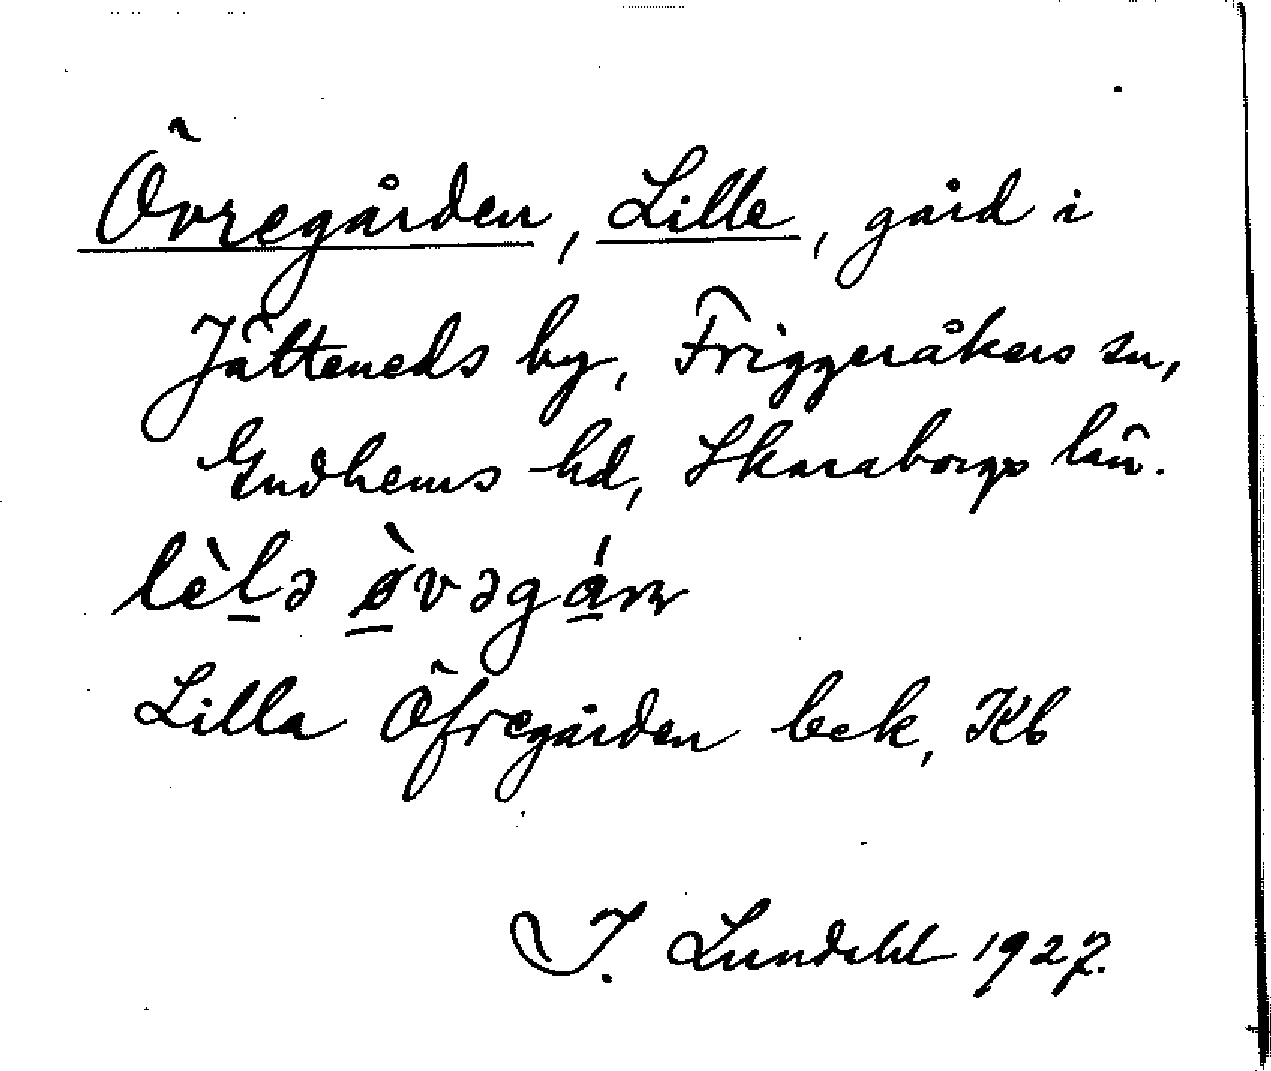 Övregården, Lille, gård i
Jätteneds by, Friggeråkers sn,
Gudhems hd, Skaraborgs län.
lèlə òvəgán
Lilla Öfregården bek, Kb
I. Lundahl 1927.